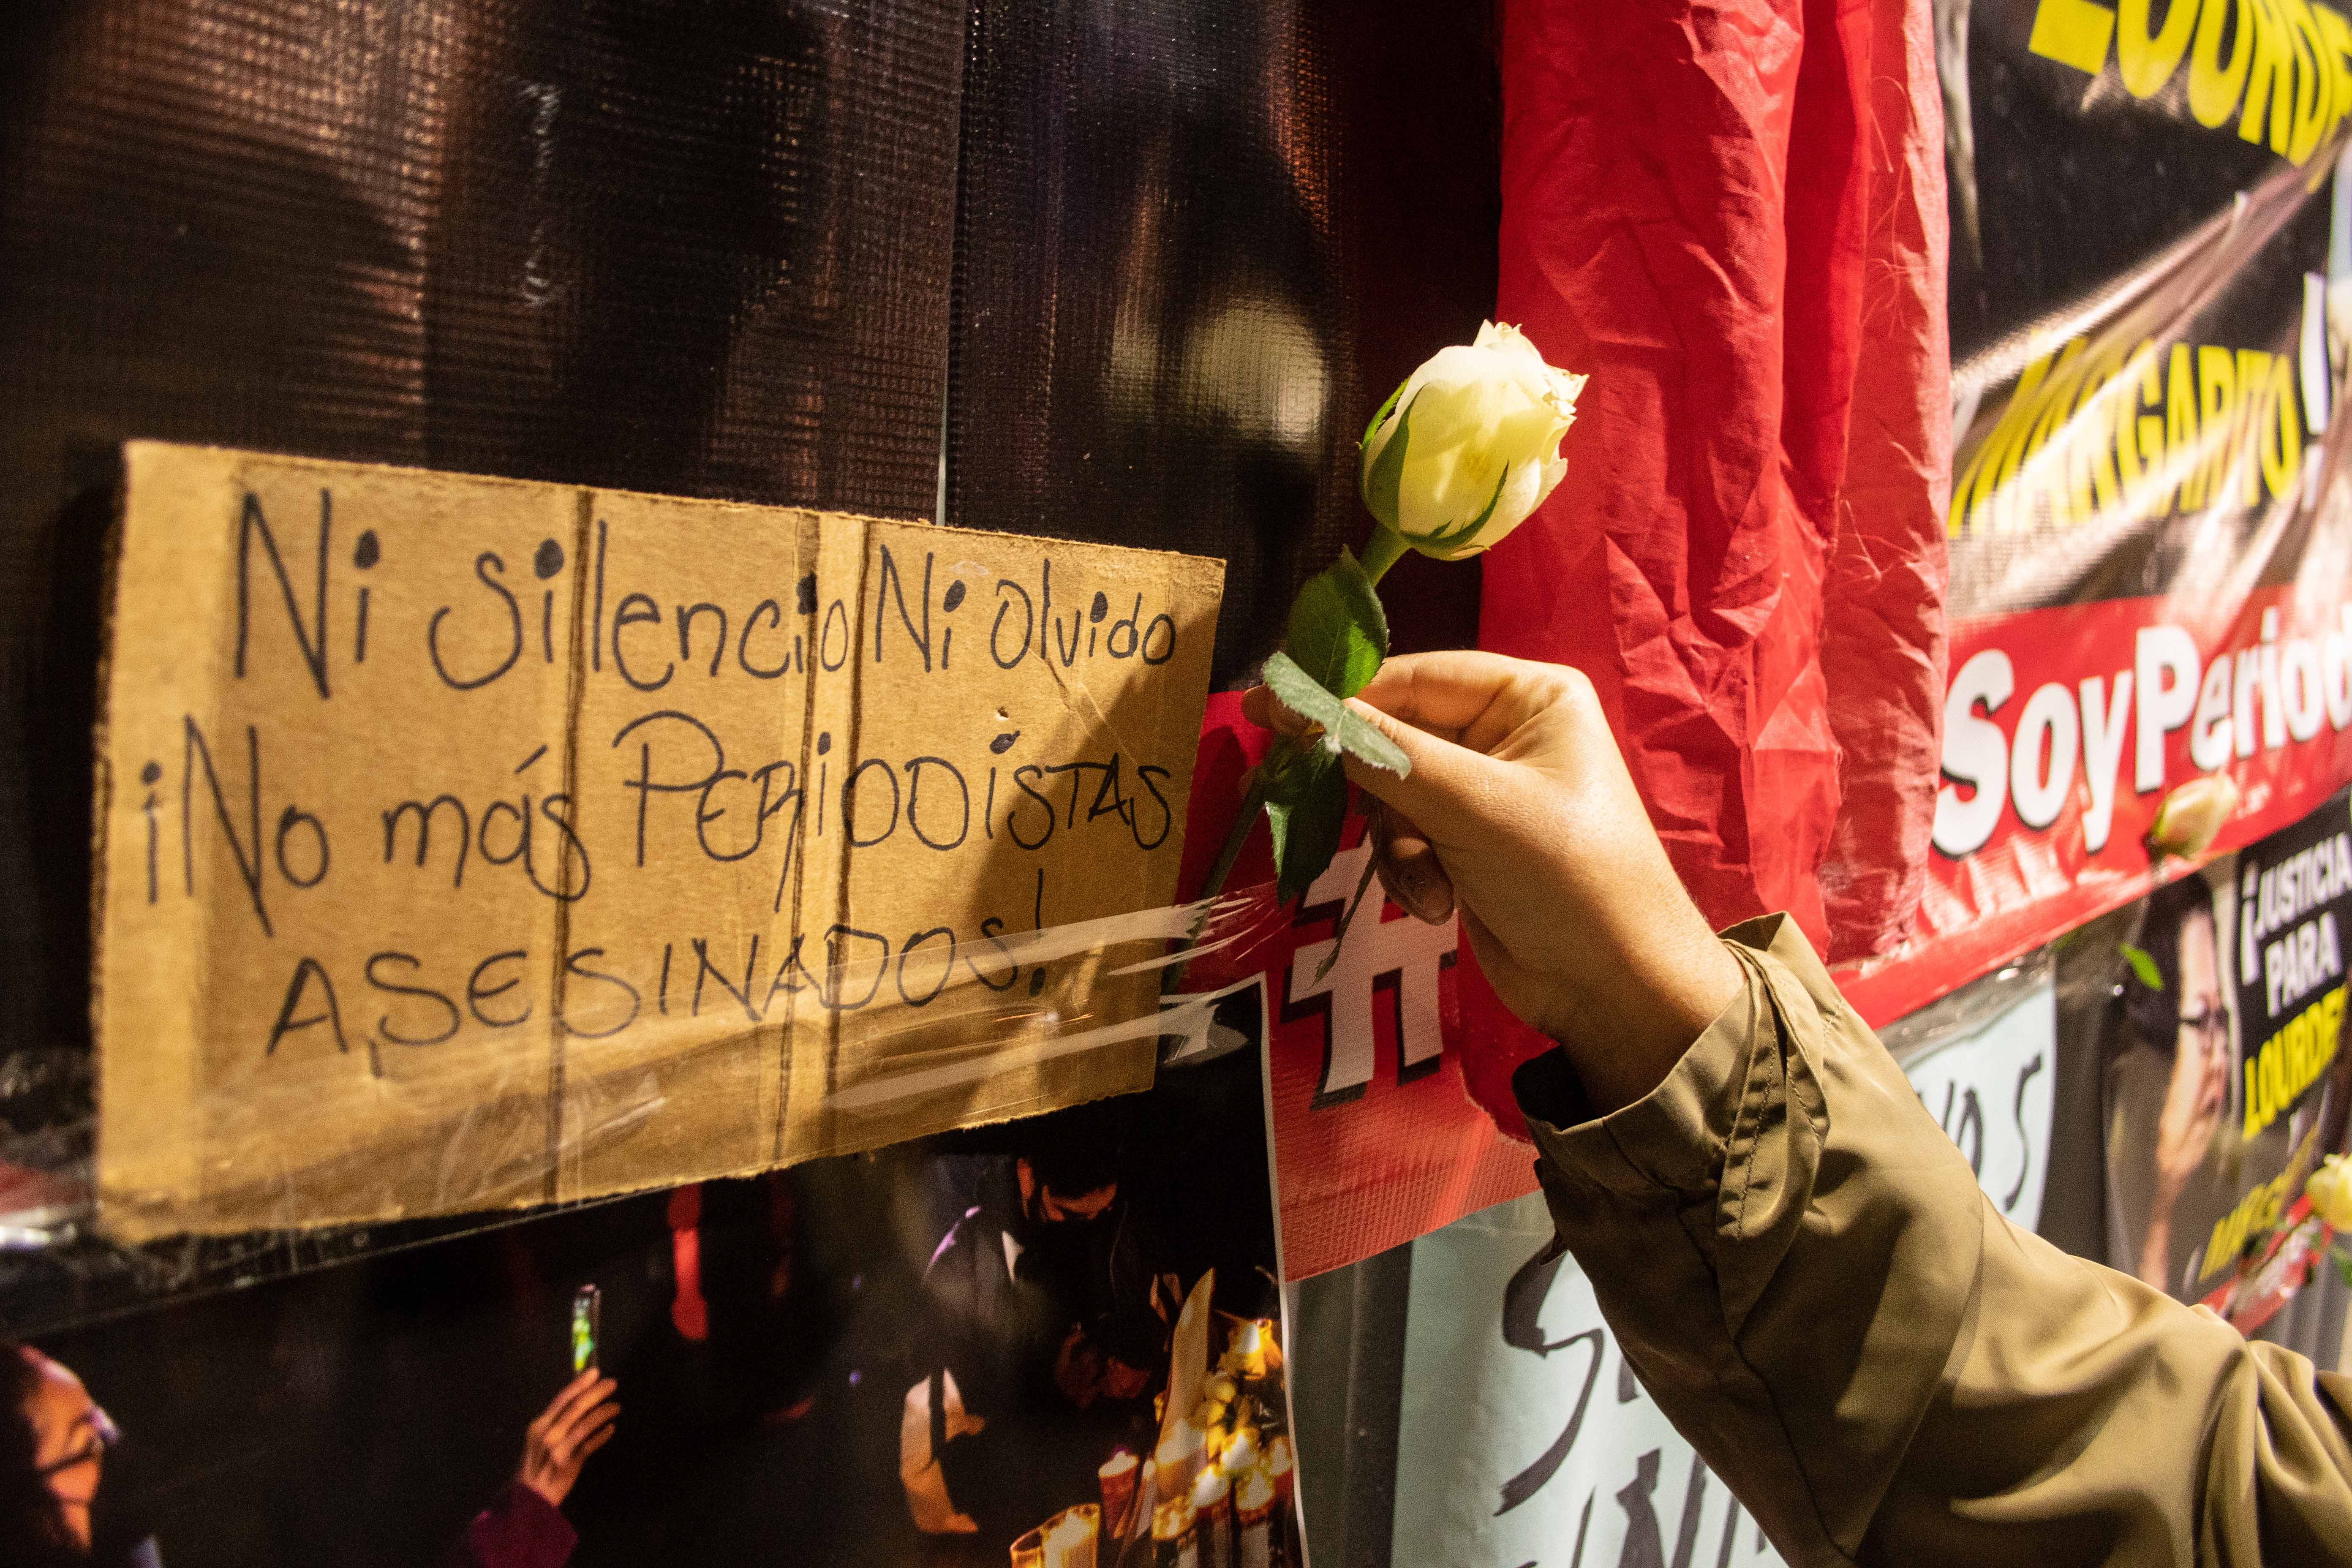 Ni silencio Ni olvido
¡No más PERiODiSTAS
ASESINADOS!
#
MARGARITO!
SoyPeriod
¡JUSTICIA
PARA
LOURDE